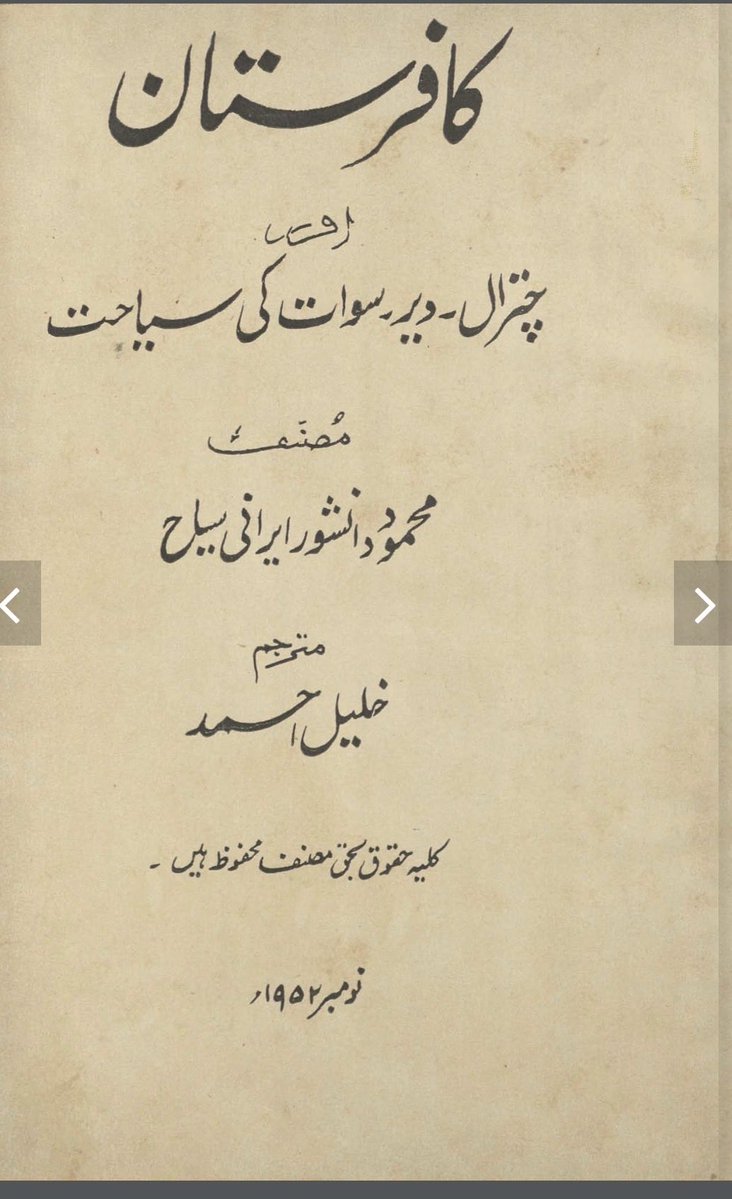 کافرستان
اور
چترال۔ دیر۔ سوات کی سیاحت
مُصنّفہٴ
محمود دانشور ایرانی سیاح
مترجم
خلیل احمد
کلیہ حقوق بحق مصنف محفوظ ہیں ۔
نومبر ۱۹۵۲ء